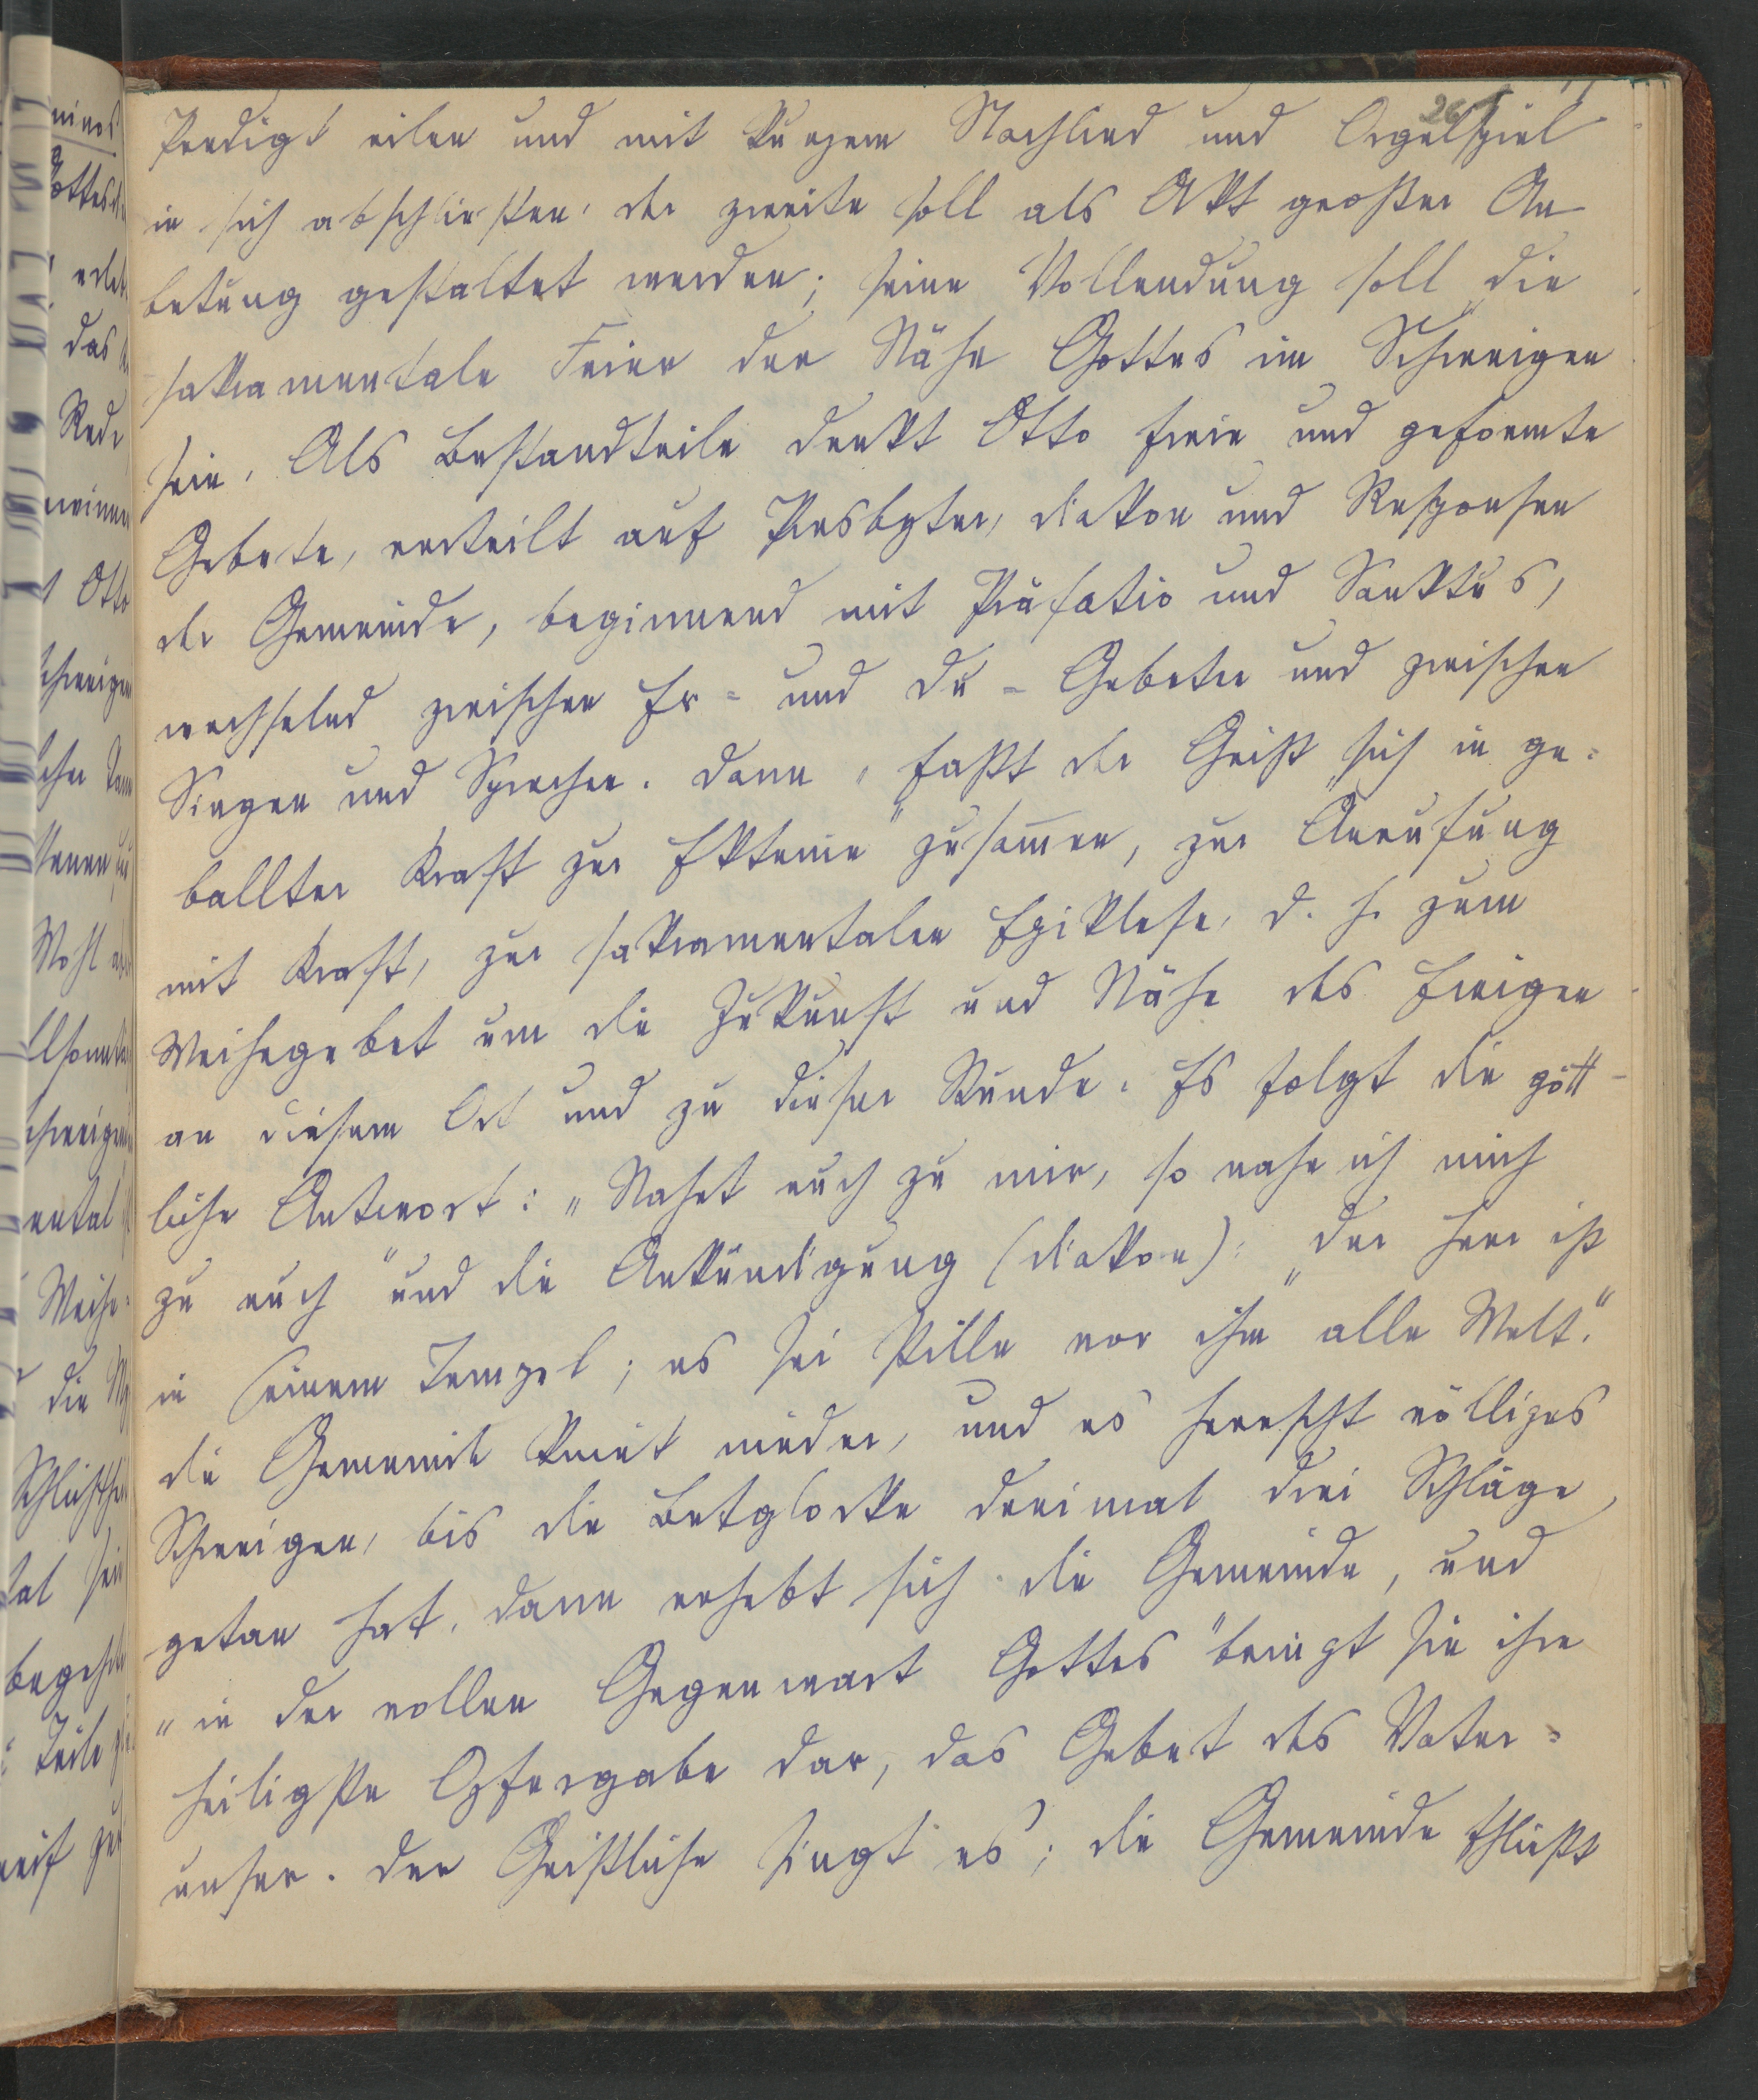 26
Predigt eilen und mit kurzem Nachlied und Orgelspiel
in sich abschließen, der zweite soll als Akt großer An
betung gestaltet werden; seine Vollendung soll „die
sakramentale Feier der Nähe Gottes im Schweigen
sein. Als Bestandteile denkt Otto freie und geformte
Gebete, verteilt auf Presbyter, Diakon und Responsen
der Gemeinde, beginnend mit Präfatio und Sanktus,
wechselnd zwischen Er- und Du-Gebeten und zwischen
Singen und Sprechen. Dann „faßt der Geist sich in ge-
ballter Kraft zur Ektenie“ zusammen, zur „Anrufung
mit Kraft, zur sakramentalen Epiklese, d. h. zum
Weihegebet um die Zukunft und Nähe des Ewigen
an diesem Ort und zu dieser Stunde. Es folgt die gött-
liche Antwort: „Nahet euch zu mir, so nahe ich mich
zu euch“ und die Ankündigung (Diakon): „Der Herr ist
in seinem Tempel; es sei stille vor ihm alle Welt.“
Die Gemeinde kniet nieder, und es herrscht völliges
Schweigen, bis die Betglocke dreimal drei Schläge
getan hat. Dann erhebt sich die Gemeinde, und
„in der vollen Gegenwart Gottes“ bringt sie ihre
heiligste Opfergabe dar, das Gebet des Vater-
unser. Der Geistliche singt es; die Gemeinde schließt